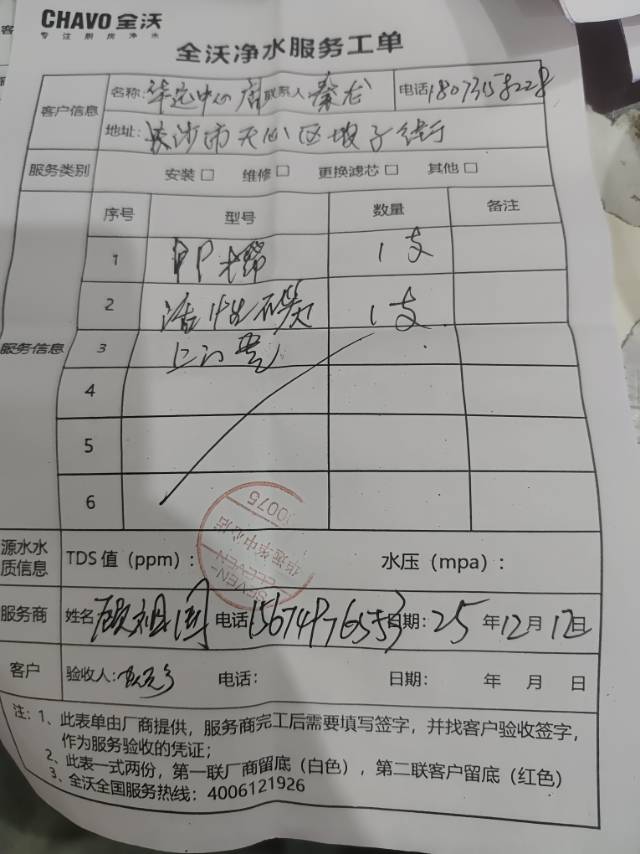 CHAVO 全沃
专注厨房净水
全沃净水服务工单
客户信息
名称: 华远中心店 联系人 秦龙 电话 18073158228
地址: 长沙市天心区坡子街
服务类别 安装 □ 维修 □ 更换滤芯 □ 其他 □
服务信息
序号 型号 数量 备注
1 PP棉 1支
2 活性碳 1支
3 上门费
4
5
6
SEVEN-
ELEVEN
华远华中心店
0075
源水水质信息 TDS 值（ppm）: 水压（mpa）:
服务商 姓名 顾祖国 电话 15674976553 日期: 25 年 12 月 17 日
客户 验收人: 电话: 日期: 年 月 日
注: 1、此表单由厂商提供，服务商完工后需要填写签字，并找客户验收签字，
作为服务验收的凭证;
2、此表一式两份，第一联厂商留底（白色），第二联客户留底（红色）
3、全沃全国服务热线: 4006121926